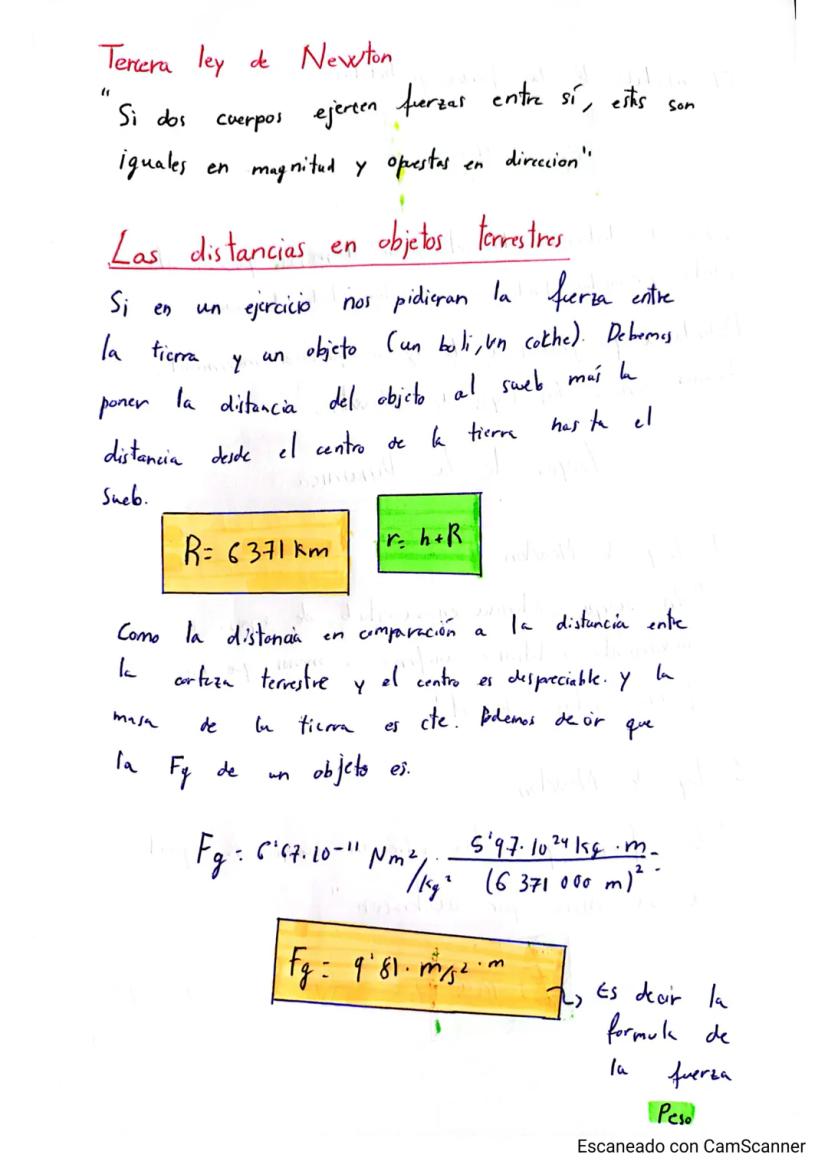 Tercera ley de Newton
"Si dos cuerpos ejercen fuerzas entre sí, estas son
iguales en magnitud y opuestas en direccion"
Las distancias en objetos terrestres
Si en un ejercicio nos pidieran la fuerza entre
la tierra y un objeto (un boli, un coche). Debemos
poner la distancia del objeto al suelo más la
distancia desde el centro de la tierra hasta el
suelo.
R= 6371 km
r= h+R
Como la distancia en comparación a la distancia entre
la corteza terrestre y el centro es despreciable. y la
masa de la tierra es cte. Podemos decir que
la Fg de un objeto es.
Fg = 6'67·10⁻¹¹ Nm²/kg² · 5'97·10²⁴ kg · m / (6 371 000 m)² =
Fg = 9'81 · m/s² · m
Es decir la
formula de
la fuerza
Peso
Escaneado con CamScanner